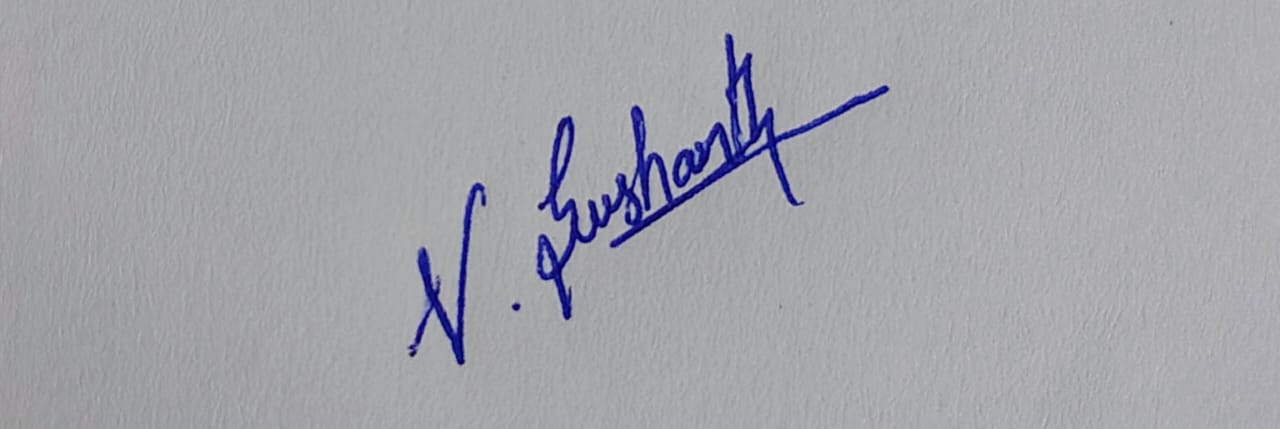 V. Sushanth